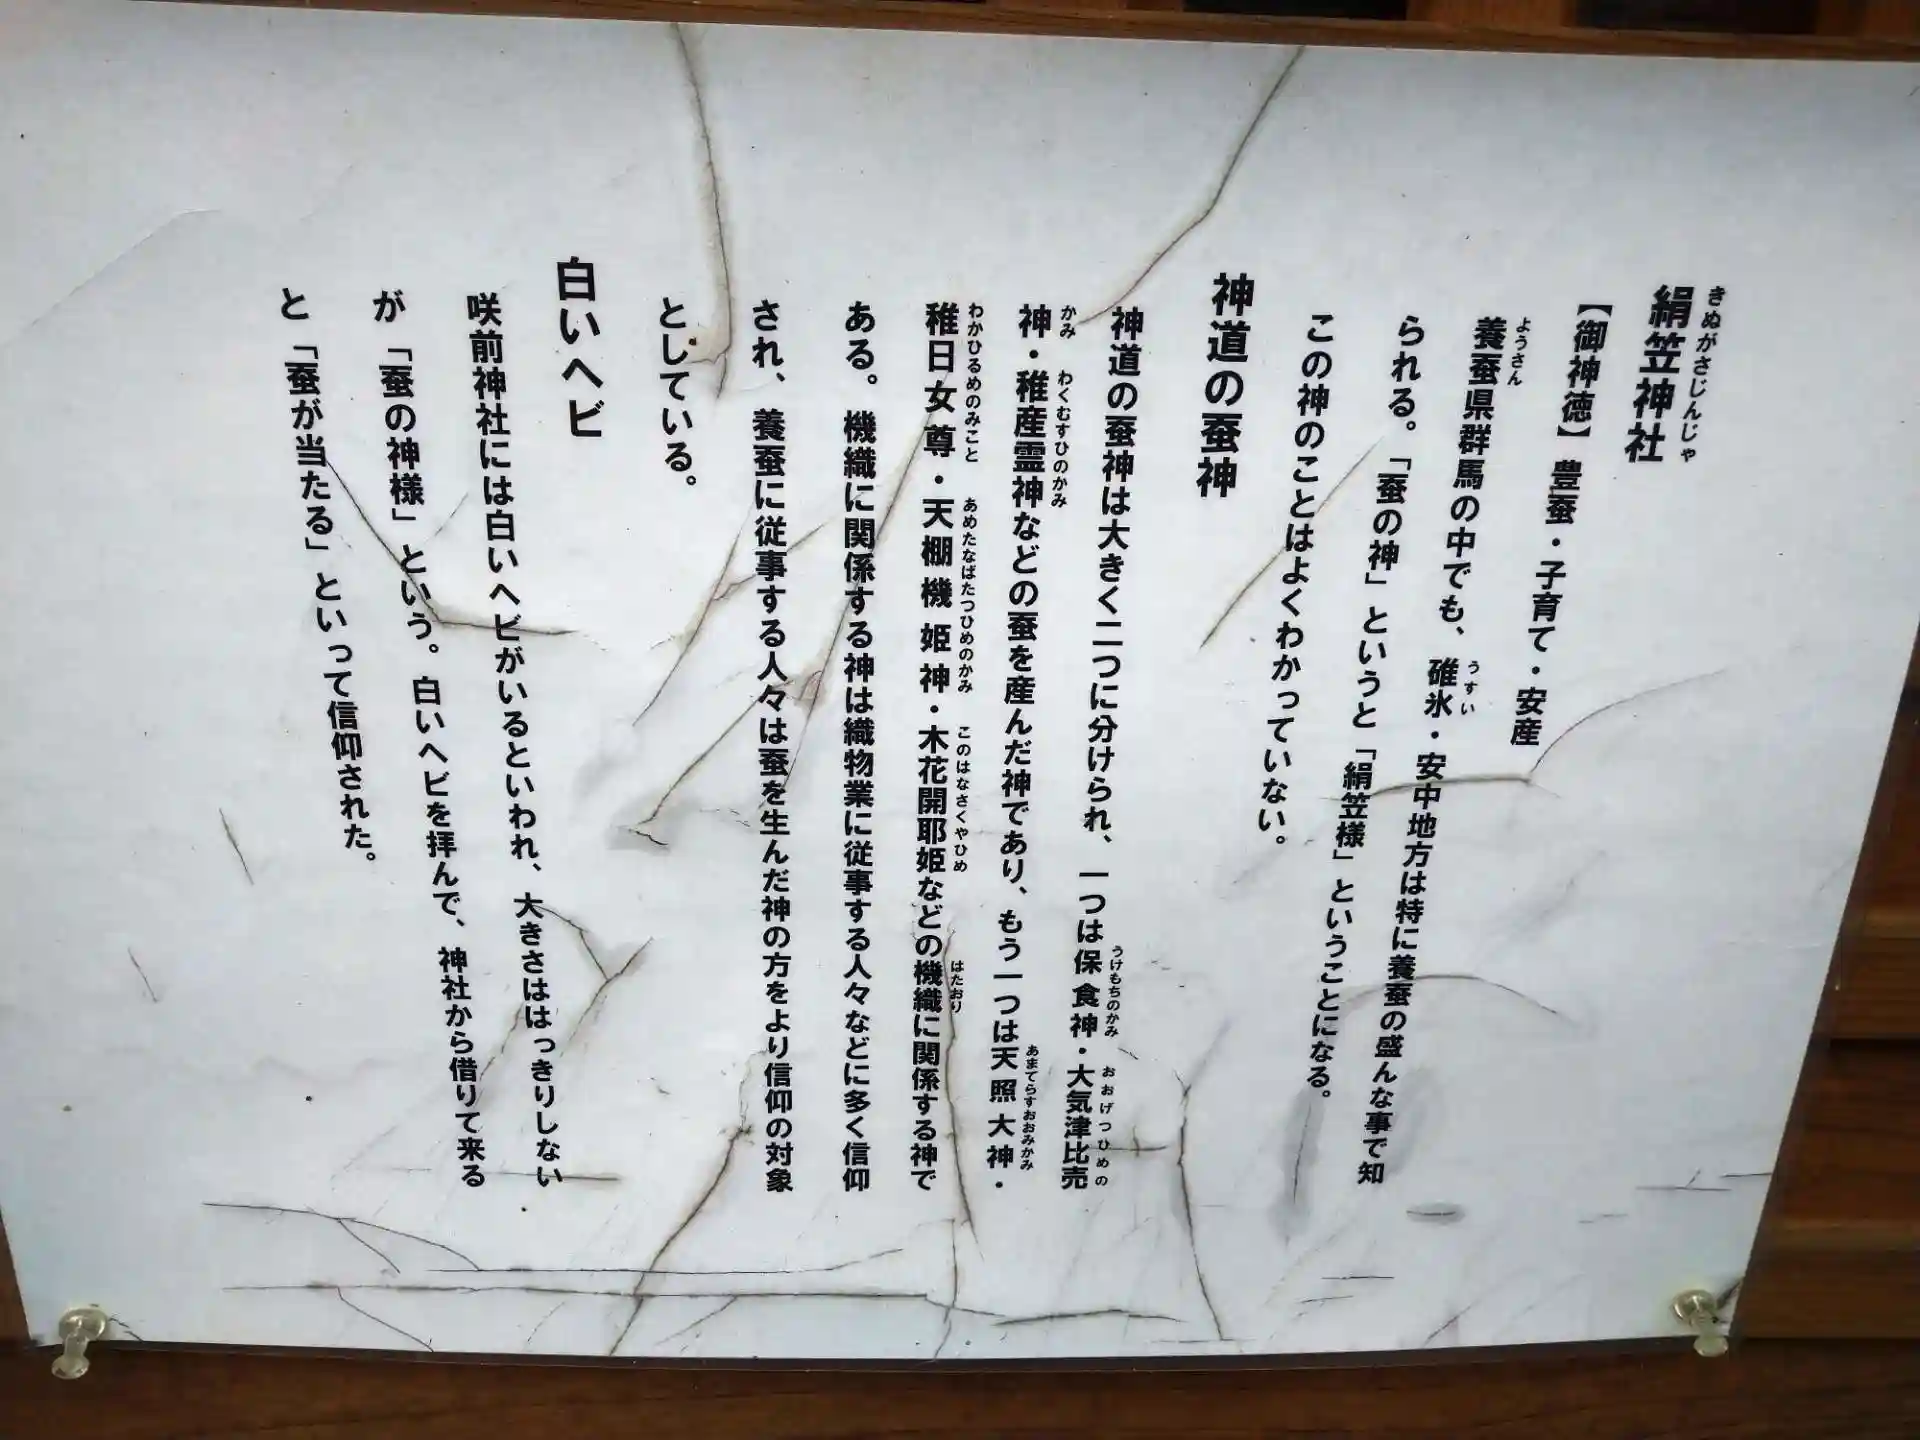 絹笠神社
きぬがさじんじゃ
【御神徳】豊蚕・子育て・安産
養蚕県群馬の中でも、碓氷・安中地方は特に養蚕の盛んな事で知
ようさん
うすい
られる。「蚕の神」というと「絹笠様」ということになる。
この神のことはよくわかっていない。
神道の蚕神
神道の蚕神は大きく二つに分けられ、一つは保食神・大気津比売
うけもちのかみ
おおげつひめの
神・稚産霊神などの蚕を産んだ神であり、もう一つは天照大神・
かみ
わくむすひのかみ
あまてらすおおみかみ
稚日女尊・天棚機姫神・木花開耶姫などの機織に関係する神で
わかひるめのみこと
あめたなばたつひめのかみ
このはなさくやひめ
はたおり
ある。機織に関係する神は織物業に従事する人々などに多く信仰
され、養蚕に従事する人々は蚕を生んだ神の方をより信仰の対象
としている。
白いヘビ
咲前神社には白いヘビがいるといわれ、大きさははっきりしない
が「蚕の神様」という。白いヘビを拝んで、神社から借りて来る
と「蚕が当たる」といって信仰された。